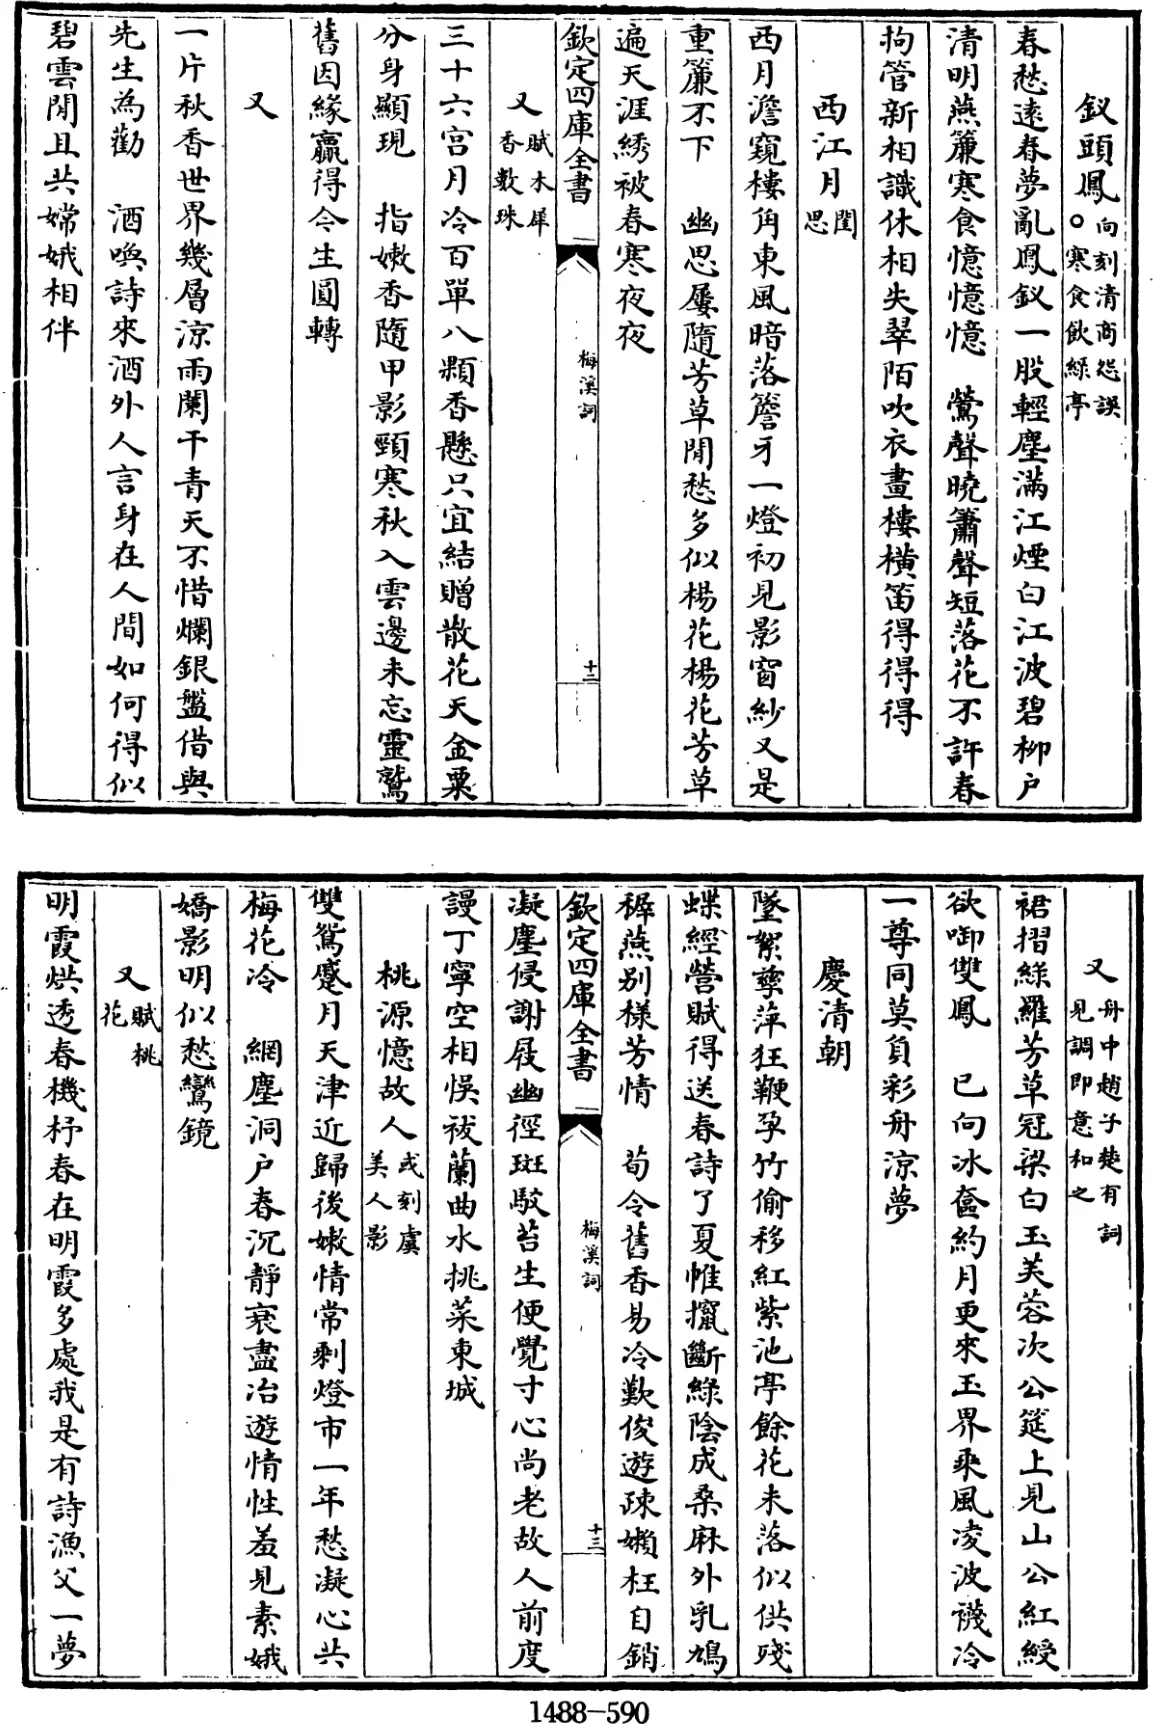 釵頭鳳○向刻清商怨誤寒食飲綠亭
春愁遠春夢亂鳳釵一股輕塵滿江煙白江波碧柳户
清明燕簾寒食憶憶憶　鶯聲曉簫聲短落花不許春
拘管新相識休相失翠陌吹衣畫樓橫笛得得得
西江月閨思
西月澹窺樓角東風暗落簷牙一燈初見影窗紗又是
重簾不下　幽思屢隨芳草閒愁多似楊花楊花芳草
遍天涯綉被春寒夜夜
欽定四庫全書　梅溪詞　十二
又賦木犀香數珠
三十六宫月冷百單八顆香懸只宜結贈散花天金粟
分身顯現　指嫩香隨甲影頸寒秋入雲邊未忘靈鷲
舊因緣贏得今生圓轉
又
一片秋香世界幾層涼雨闌干青天不惜爛銀盤借與
先生為勸　酒喚詩來酒外人言身在人間如何得似
碧雲閒且共嫦娥相伴
又舟中趙子楚有詞見調即意和之
裙摺綠羅芳草冠梁白玉芙蓉次公筵上見山公紅綬
欲啣雙鳳　已向冰奩約月更來玉界乘風凌波襪冷
一尊同莫負彩舟涼夢
慶清朝
墜絮孳萍狂鞭孕竹偷移紅紫池亭餘花未落似供殘
蝶經營賦得送春詩了夏帷攛斷綠陰成桑麻外乳鳩
穉燕别樣芳情　荀令舊香易冷歎俊遊疎懶枉自銷
欽定四庫全書　梅溪詞　十三
凝塵侵謝屐幽徑斑駁苔生便覺寸心尚老故人前度
謾丁寧空相悞祓蘭曲水挑菜東城
桃源憶故人或刻虞美人影
雙鴛蹙月天津近歸後嫩情常剩燈市一年愁凝心共
梅花冷　網塵洞户春沉靜衰盡冶遊情性羞見素娥
嬌影明似愁鸞鏡
又賦桃花
明霞烘透春機杼春在明霞多處我是有詩漁父一夢
1488—590